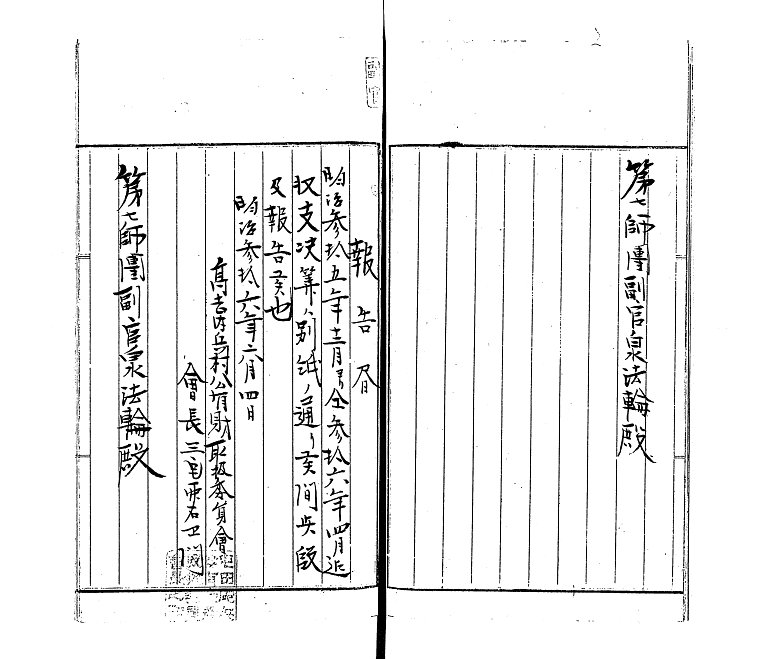 第七師團副官泉法輪殿
報告書
明治参拾五年十二月ヨリ仝参拾六年四月迄
収支決算ハ別紙ノ通リ候間此段
及報告候也
明治参拾六年六月四日
村公有財取扱委員會
會長三宅
第七師團副官泉法輪殿